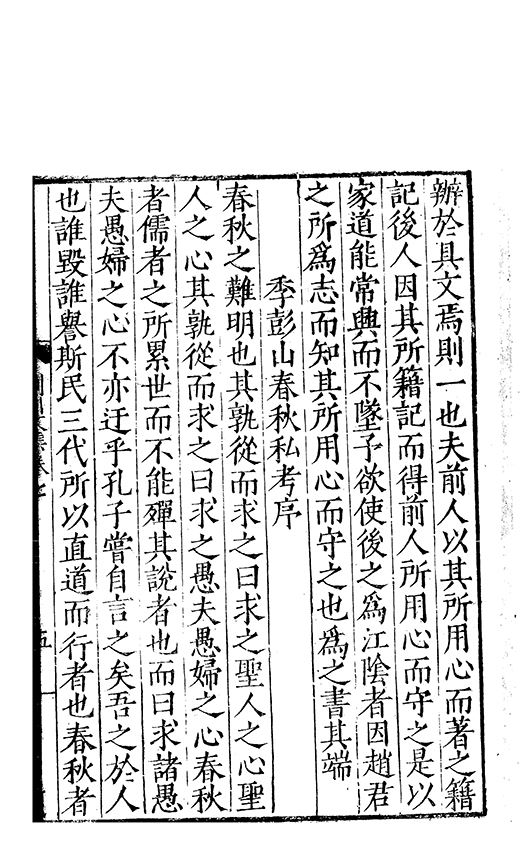 辦於具文焉則一也夫前人以其所用心而著之籍
記後人因其所籍記而得前人所用心而守之是以
家道能常興而不墜予欲使後之爲江陰者因趙君
之所爲志而知其所用心而守之也爲之書其端
季彭山春秋私考序
春秋之難明也其孰從而求之曰求之聖人之心聖
人之心其孰從而求之曰求之愚夫愚婦之心春秋
者儒者之所累世而不能殫其說者也而曰求諸愚
夫愚婦之心不亦迂乎孔子嘗自言之矣吾之於人
也誰毀誰譽斯民三代所以直道而行者也春秋者
五